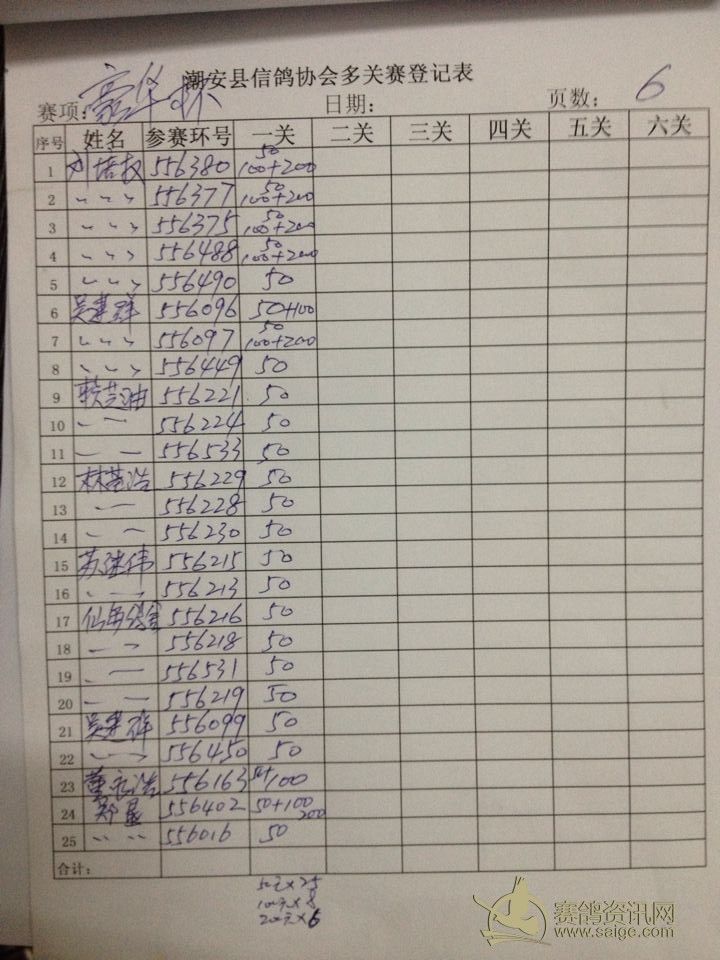 潮安县信鸽协会多关赛登记表
赛项：豪华环 日期： 页数： 6
序号 姓名 参赛环号 一关 二关 三关 四关 五关 六关
1 刘培权 556380 50 100+200
2 〃 〃 〃 556377 50 100+200
3 〃 〃 〃 556375 50 100+200
4 〃 〃 〃 556488 50 100+200
5 〃 〃 〃 556490 50
6 556096 50+100
7 〃 〃 〃 556097 50 100+200
8 〃 〃 〃 556449 50
9 556221 50
10 556224 50
11 556533 50
12 556229 50
13 556228 50
14 556230 50
15 556215 50
16 556213 50
17 556216 50
18 556218 50
19 556531 50
20 556219 50
21 556099 50
22 556450 50
23 556163 50+100
24 556402 50+100 200
25 〃 〃 556016 50
合计：
50元×25
100元×8
200元×6
赛鸽资讯网
www.saige.com